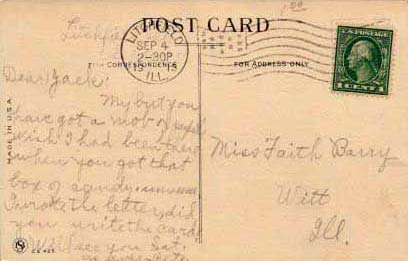 Litchfield
POST CARD
LITCHFIELD
SEP 4
2-30P
ILL.
FOR CORRESPONDENCE
FOR ADDRESS ONLY
U.S. POSTAGE
1 CENT 1
MADE IN U.S.A.
Dear Jack:
My but you
have got a mob of
wish I had been here
when you got that
box of candy.
I wrote the letter, did
you write the card
Will see you Sat.
Miss Faith Barry
Witt
Ill.